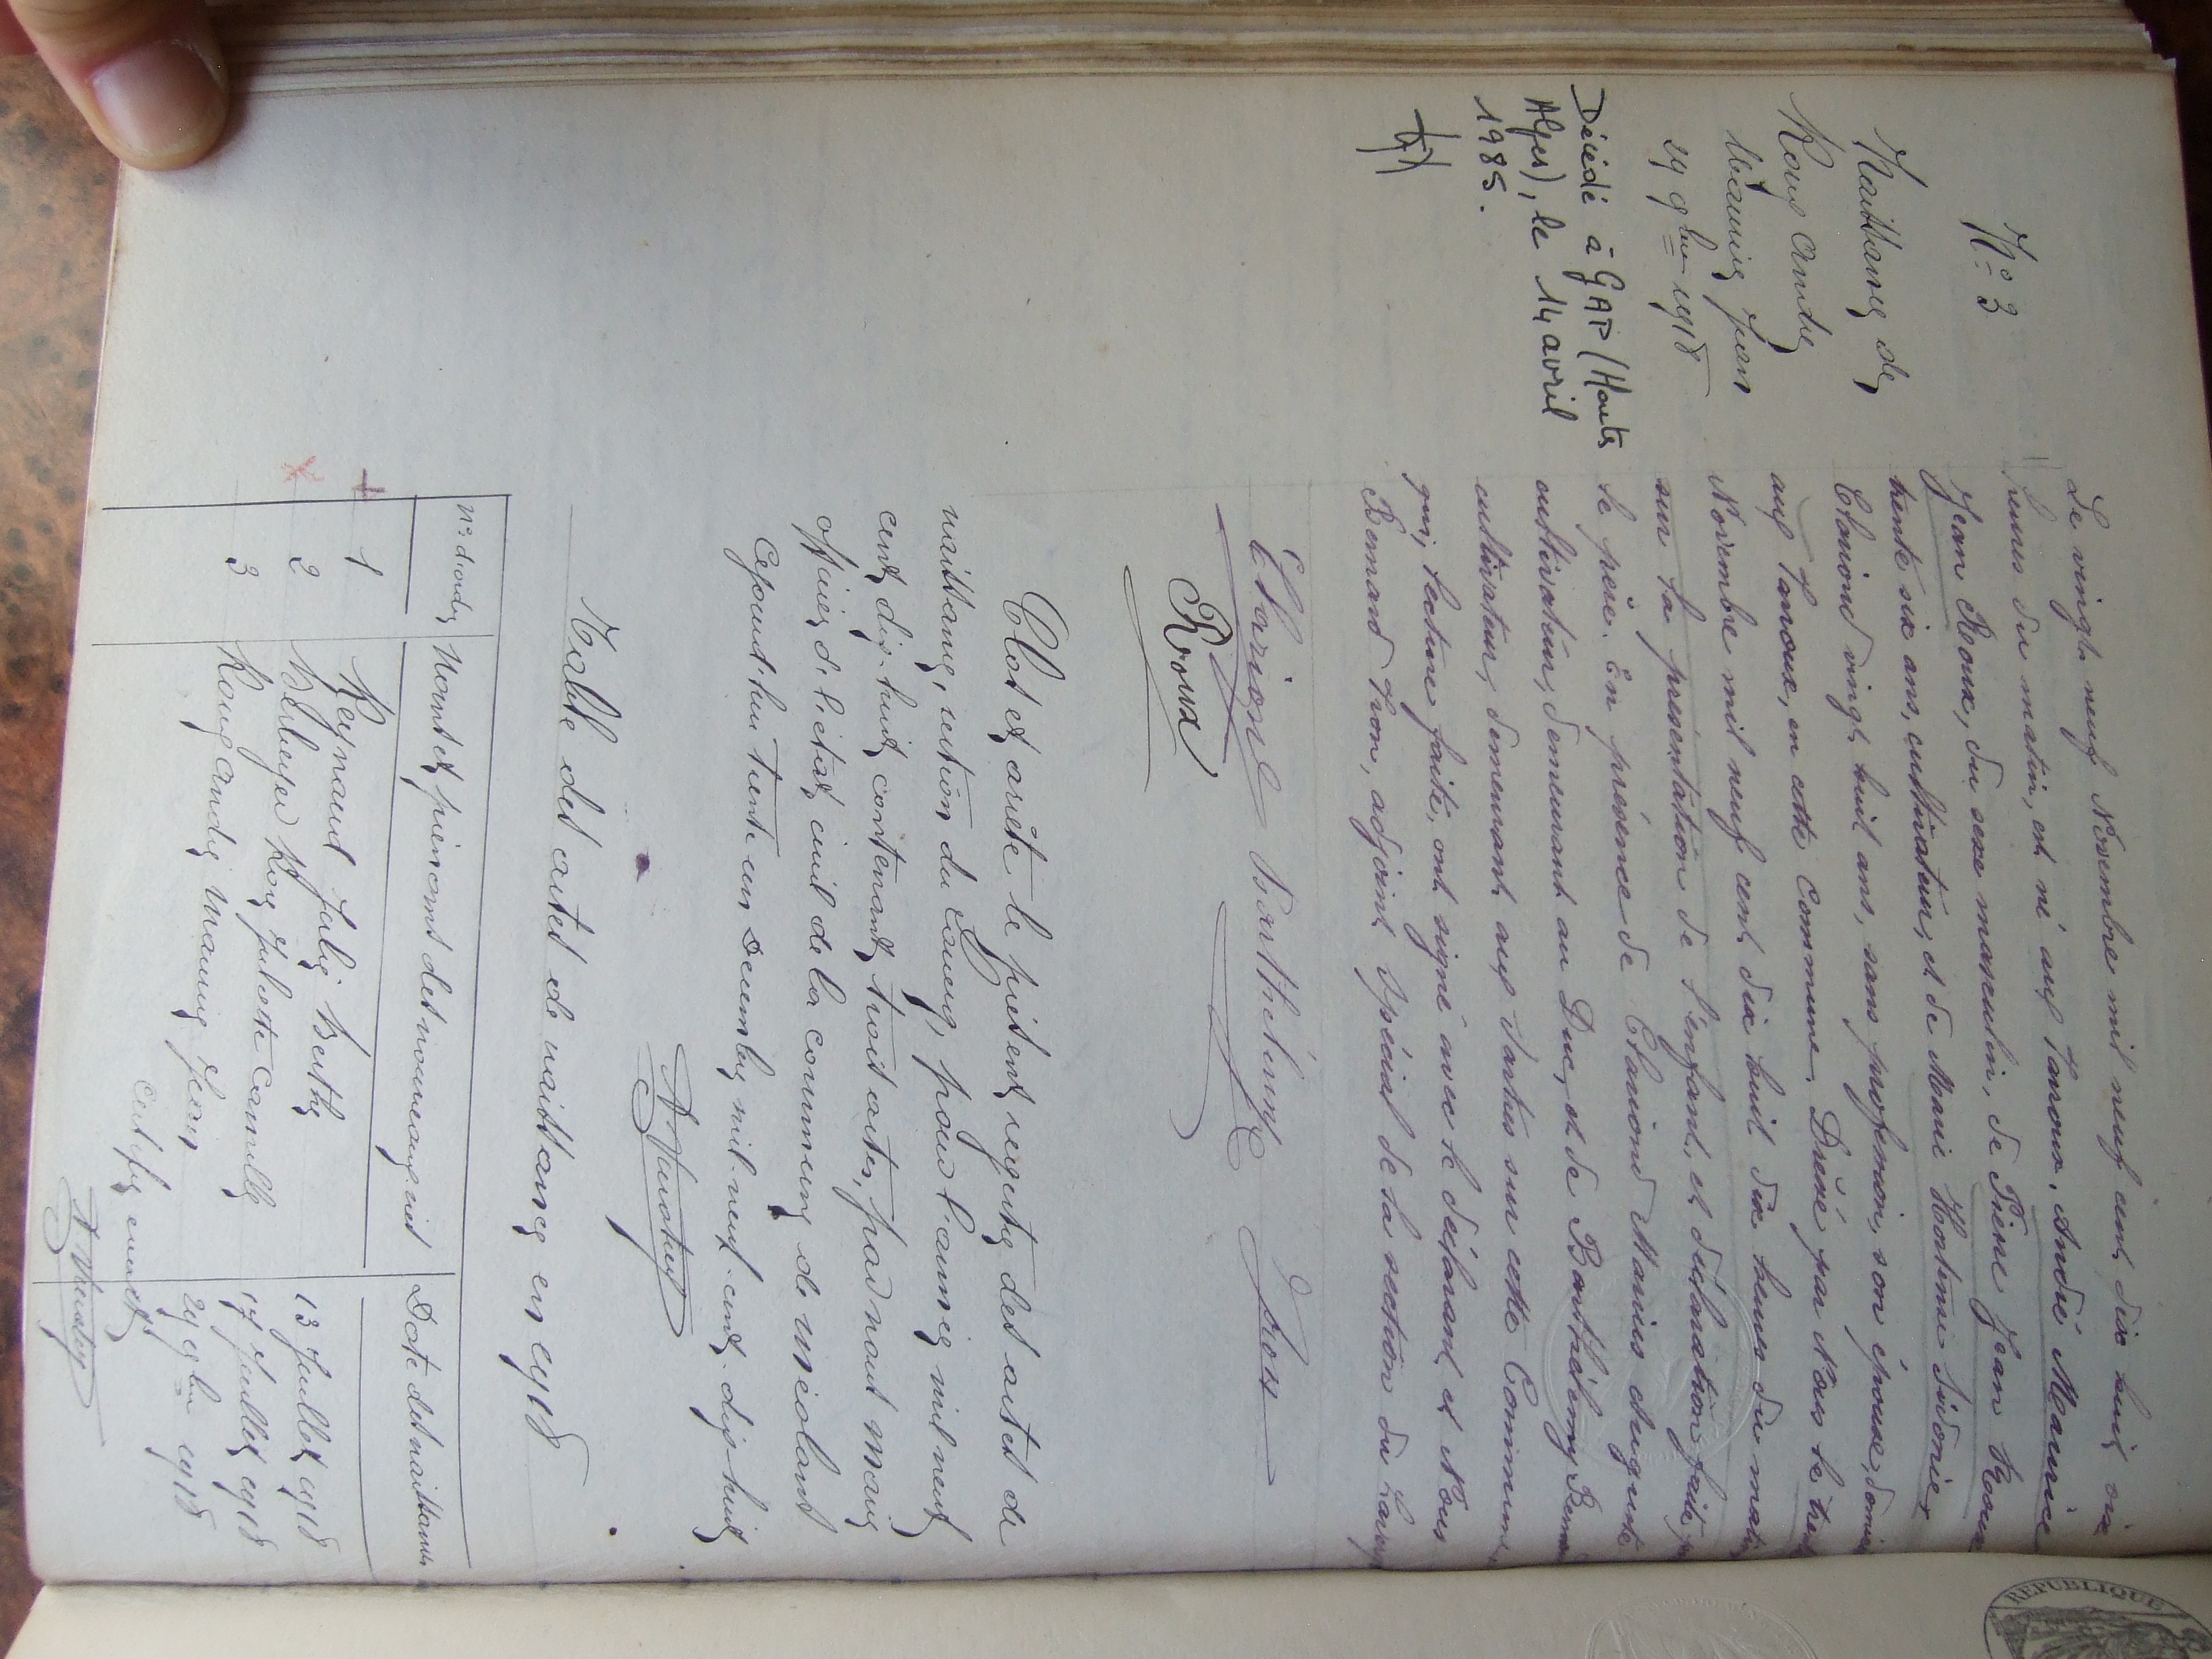 N° 3
Naissance de
Roux André
Maurice Jean
29 9bre 1918
Décédé à GAP (Hautes
Alpes), le 14 avril
1985.
Le vingt neuf Novembre mil neuf cent dix huit, dix
heures du matin, est né aux Taroux, André Maurice
Jean Roux, du sexe masculin, de Pierre Jean Roux
trente six ans, cultivateur, et de Marie Hortense Sidonie
Clariond vingt huit ans, sans profession, son épouse, domici
aux Taroux, en cette Commune. Dressé par Nous le trente
Novembre mil neuf cent dix huit dix heures du matin
sur la présentation de l'enfant, et déclaration faite, par
le père. En présence de Clariond Marius cinquante
cultivateur, demeurant au Duc, et de Barthélemy Bernard
cultivateur, demeurant aux sur cette Commune,
qui, lecture faite, ont signé avec le déclarant et Nous
Bernard adjoint spécial de la section du Lauzet
Clariond Barthélemy
Roux
Clos et arrêté le présent registre des actes de
naissance, section du pour l'année mil neuf
cent dix-huit contenant trois actes, par nous maire
officier de l'état civil de la commune de
ce jourd'hui trente un Décembre mil neuf cent dix-huit
Table des actes de naissance en 1918
n° d'ordre Noms et prénoms des nouveaux nés Date des naissances
1 Reynaud Julie Berthe 13 Juillet 1918
2 Juliette Camille 17 Juillet 1918
3 Roux André Maurice Jean 29 9bre 1918